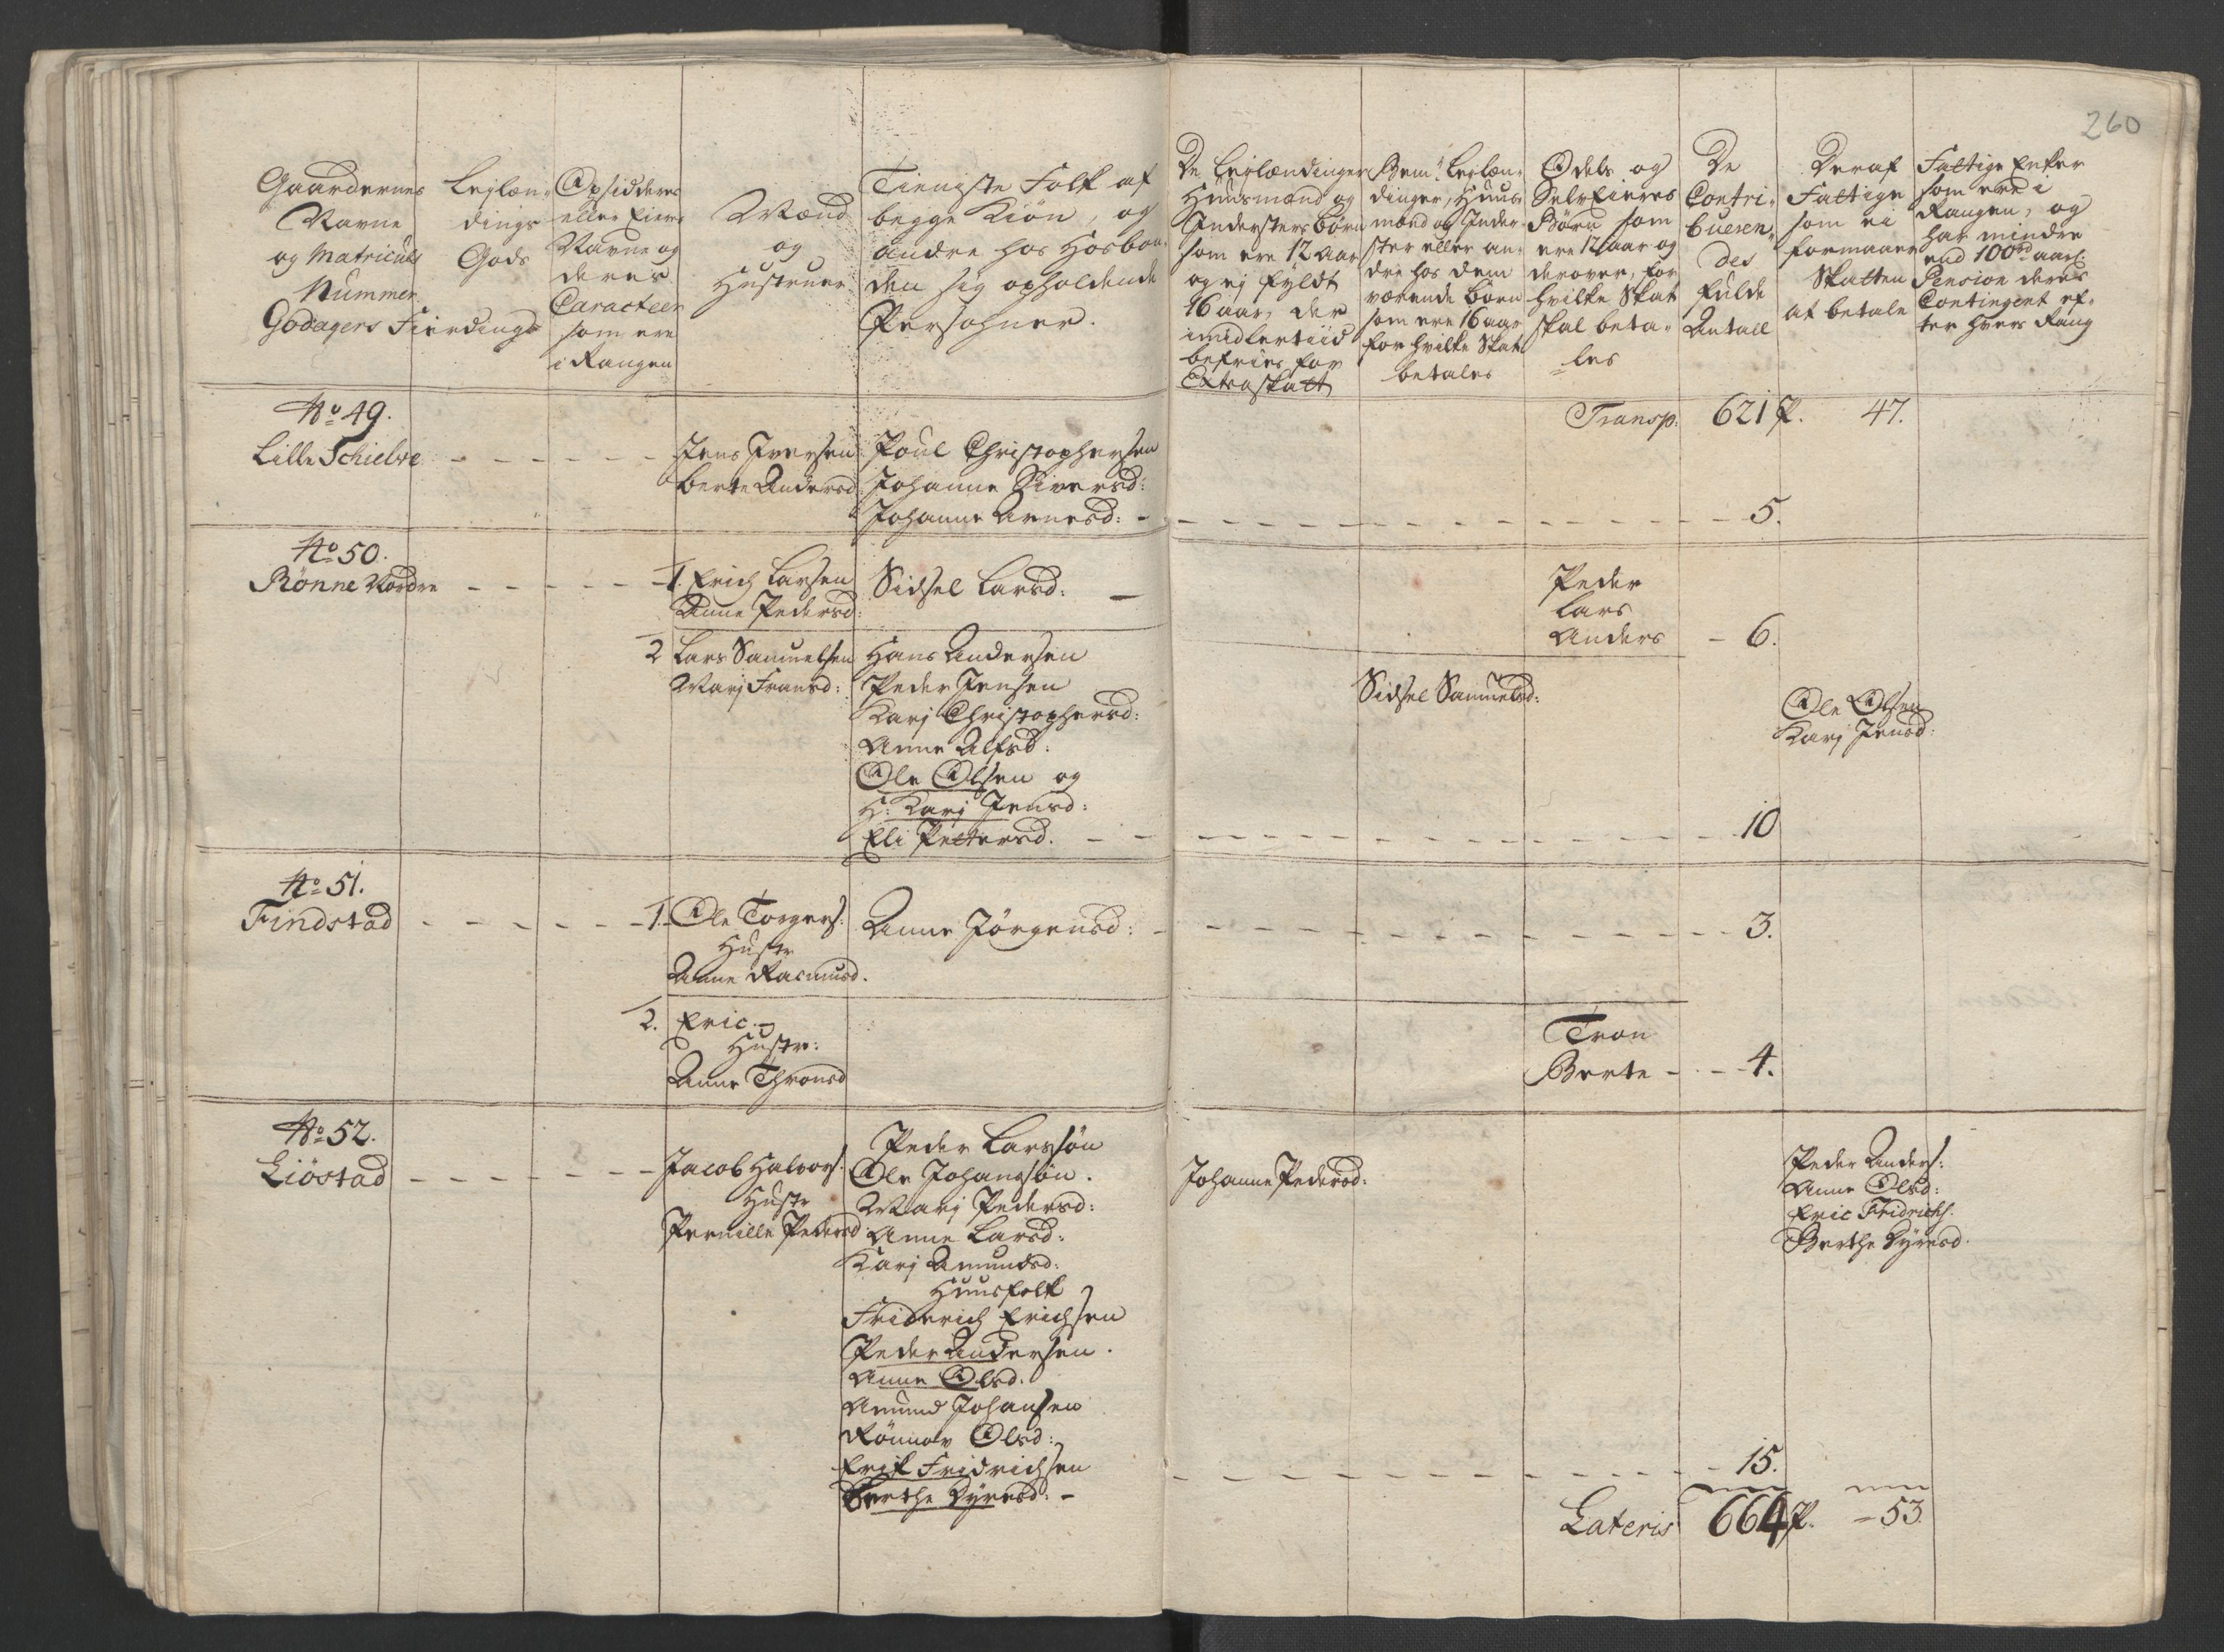 260
Gaardernes
Navne
og Matriculs
Nummer
Godagers Fierdings
Lejlæn-
dings
Gods
Opsidderes
eller Eiers
Navne og
deres
Caracteer
som ere
i Rangen
Mænd
og
Hustruer
Tieniste Folk af
begge Kiøn, og
andre hos Hosbon-
den sig opholdende
Persohner.
De Lejlændinger
Huusmænd og
Indersters børn
som ere 12 Aar
og ej fyldt
16 aar, der
imidlertiid
befries for
Extraskatt
Bem.te Lejlæn-
dinger, Huus-
mænd og Inder-
ster eller an-
dre hos dem
værende børn
som ere 16 aar
for hvilke Skat
betales
Odels og
SelvEieres
Børn som
ere 12 aar og
derover, for
hvilke Skat
skal beta-
les
De
Contri-
bueren-
des
fulde
Antall
Deraf
Fattige
som ei
formaaer
Skatten
at betale
Fattige Enker
som ere i
Rangen, og
har mindre
end 100rd aarl:
Pension deres
Contingent ef-
ter hvers Rang
Transp. 621 P. 47.
No 49.
Lille Schielve - - - - - -
Jens Iversen
Berte Andersd:
Poul Christophersen
Johanne Siversd:
Johanne Arnesd: - - - - 5.
No 50.
Rönne Nordre - - - - - -
1. Erich Larsen
Anne Pedersd:
Sidsel Larsd: -
Peder
Lars
Anders - 6.
2 Lars Samuelsen
Marj Fransd:
Hans Andersen
Peder Jensen
Karj Christophersd:
Anne Alfsd:
Ole Olsen og
H: Karj Jensd:
Eli Pettersd. - - - - 10
Sidsel Samuelsd:
Ole Olsen
Karj Jensd:
No 51.
Findstad - - - - - -
1. Ole Torgers:
Hustr
Anne Rasmusd.
Anne Jörgensd: - - - - 3.
2. Eric -
Hustr:
Anne Thronsd
Tron
Berte - - - 4.
No 52.
Liöstad - - - - - -
Jacob Halvors:
Hustr
Pernille Pedersd
Peder Larssön
Ole Johansön.
Marj Pedersd:
Anne Larsd:
Karj Amundsd:
Huusfolk
Friderich Erichsen
Peder Andersen.
Anne Olsd.
Amund Johansen
Rönnov Olsd:
Erik Fridrichsen
Berthe Dyresd: - - - - 15.
Johanne Pedersd:
Peder Anders:
Anne Olsd:
Eric Fridrichs.
Berthe Dyresd.
Lateris 664 P. - 53.